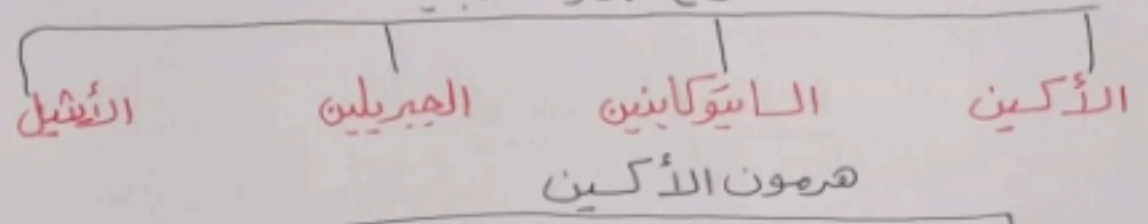 الأكسين السايتوكاينين الجبريلين الأثيل
هرمون الأكسين